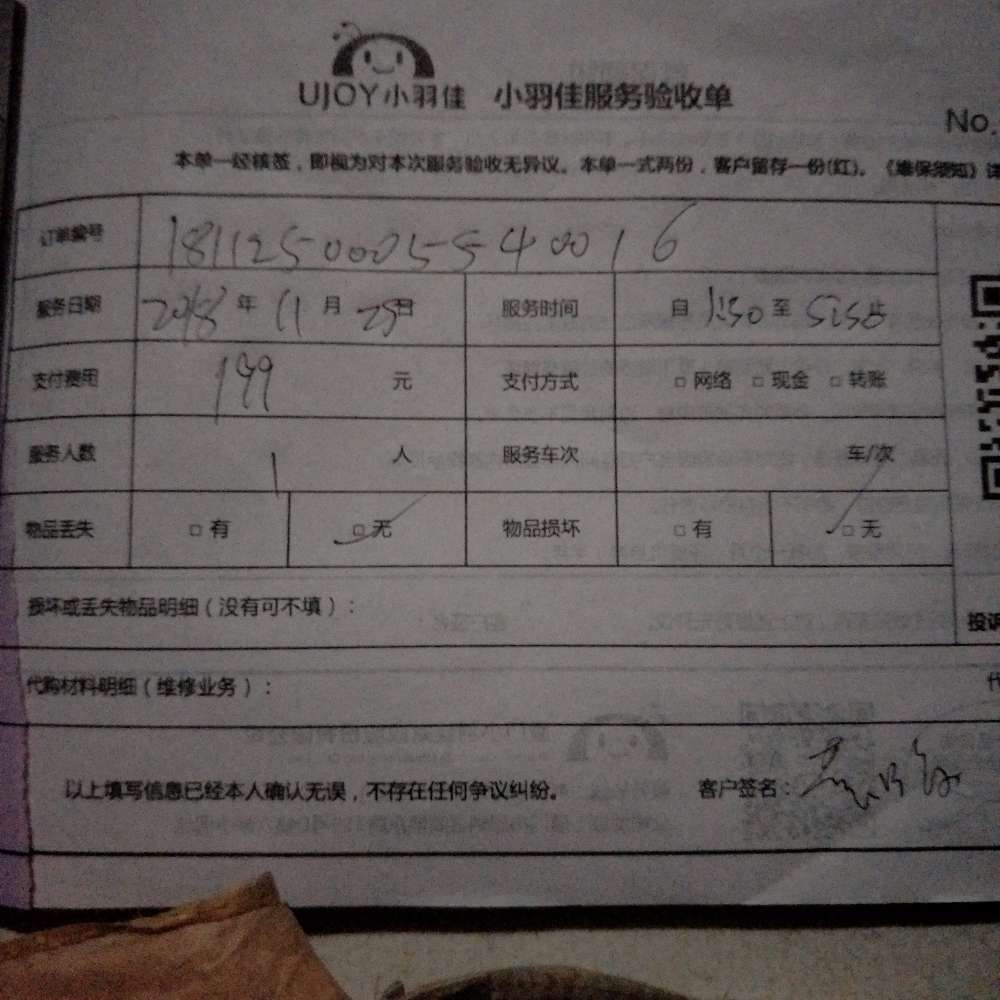 UJOY小羽佳 小羽佳服务验收单
No.
本单一经核签，即视为对本次服务验收无异议。本单一式两份，客户留存一份(红)。《维保须知》详
订单编号 1811250005540016
服务日期 2018 年 11 月 25日 服务时间 自 1:50 至
支付费用 199 元 支付方式 □ 网络 □ 现金 □ 转账
服务人数 1 人 服务车次 车/次
物品丢失 □ 有 □ 无 物品损坏 □ 有 □ 无
损坏或丢失物品明细（没有可不填）：
投诉
代购材料明细（维修业务）：
以上填写信息已经本人确认无误，不存在任何争议纠纷。 客户签名：